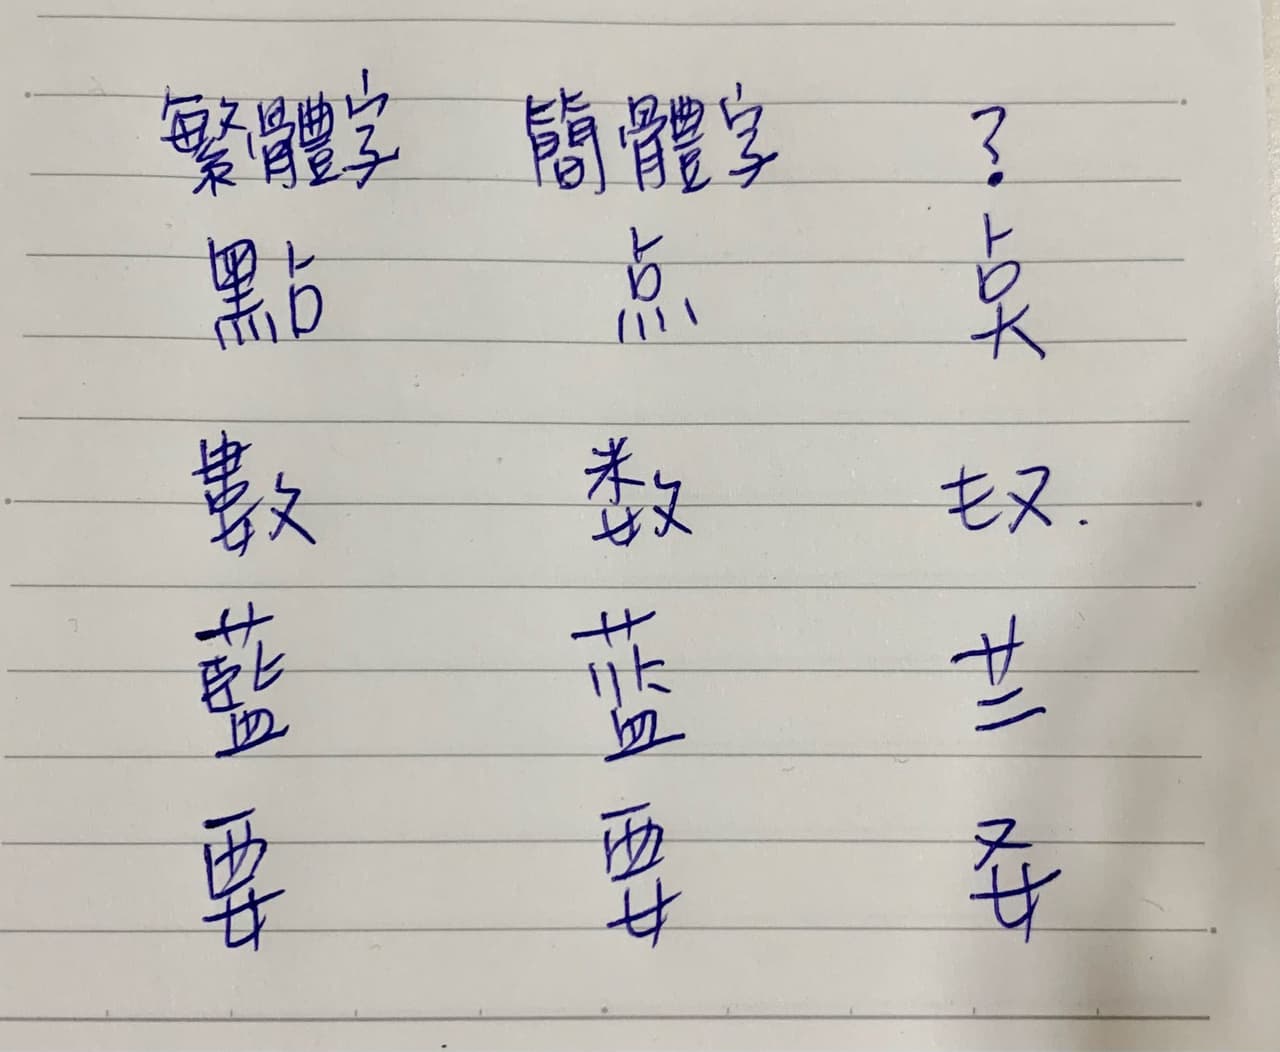 繁體字 簡體字 ?
點 点 奌
數 数
藍 蓝
要 要